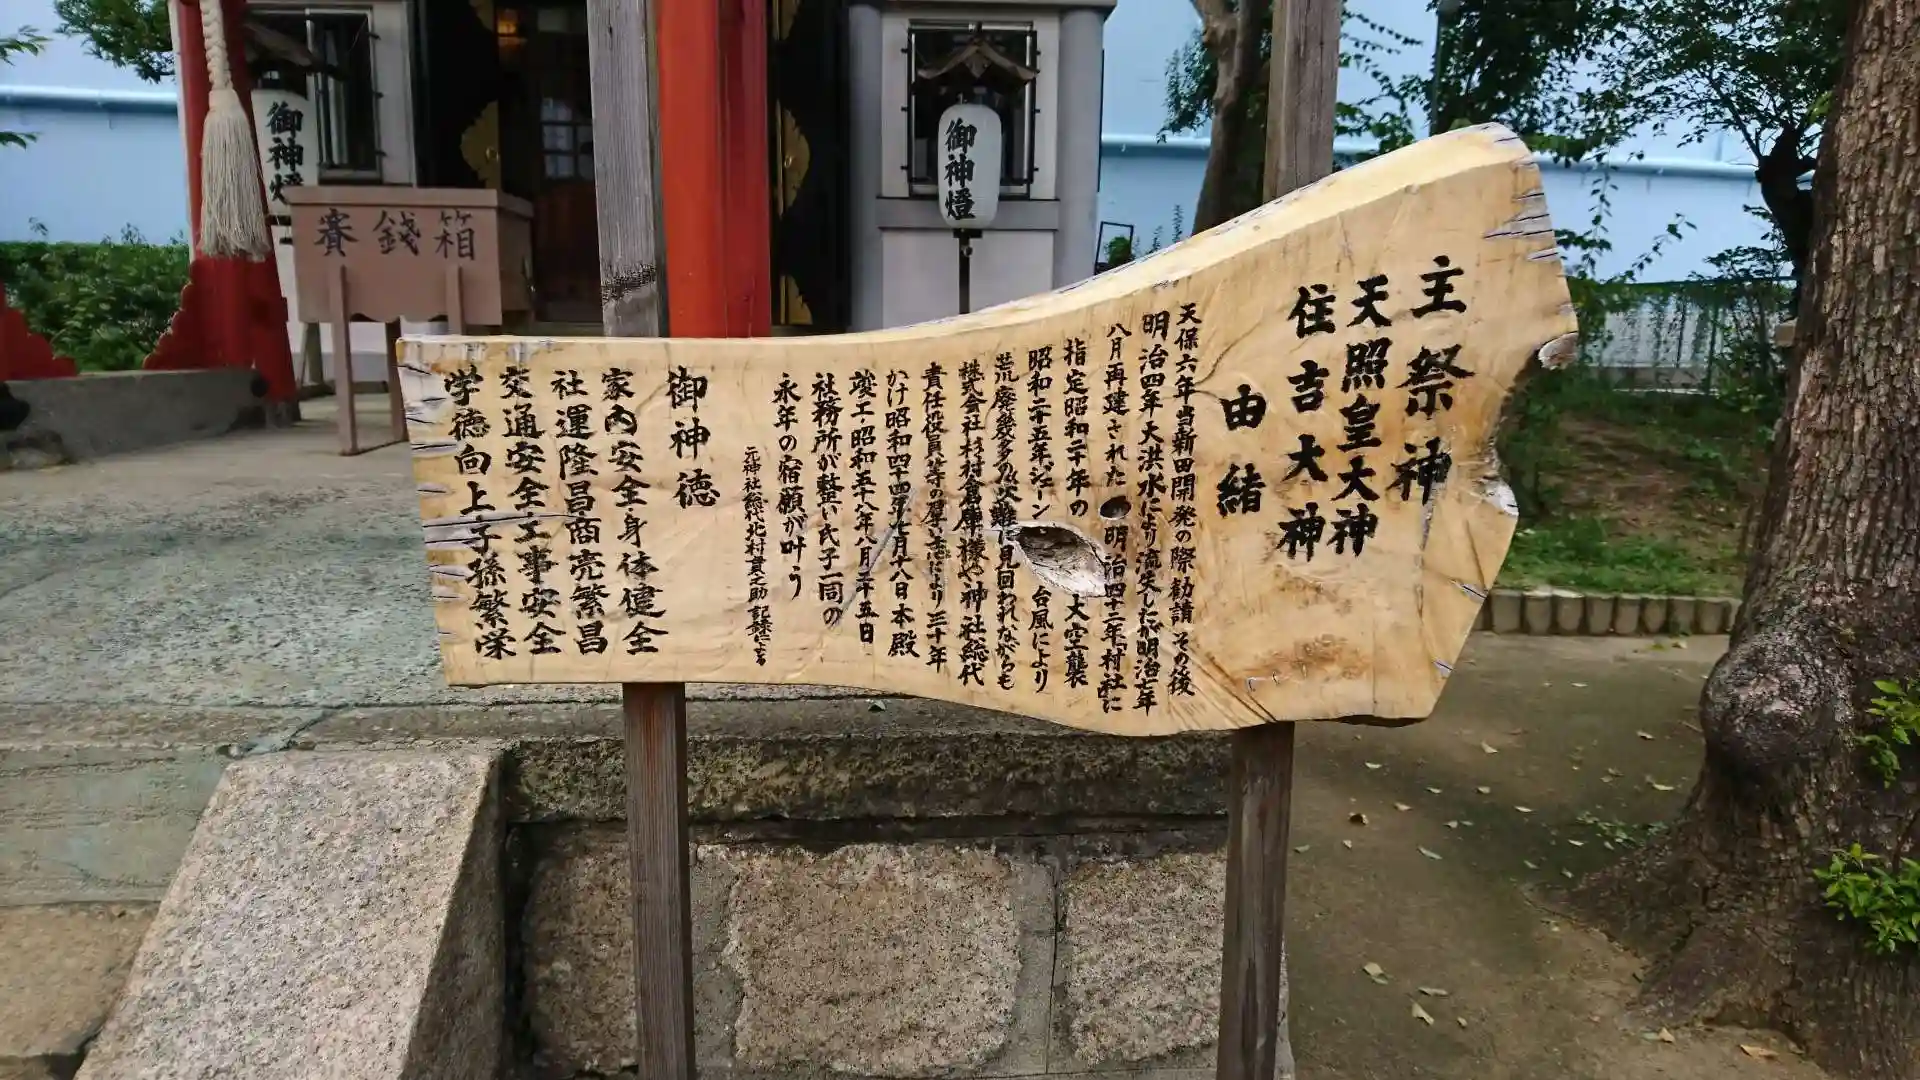 主祭神
天照皇大神
住吉大神
由緒
天保六年当新田開発の際勧請その後
明治四年大洪水により流失したが明治七年
八月再建された 明治四十二年「村社」に
指定昭和二十年の 大空襲
昭和二十五年、ジェーン 台風により
荒廃幾多の災難に見回われながらも
株式会社杉村倉庫様や神社総代
責任役員等の厚い志により三十年
かけ昭和四十四年九月十八日本殿
竣工・昭和五十八年八月二十五日
社務所が整い氏子一同の
永年の宿願が叶う
元神社総代北村貴之助 記録による
御神徳
家内安全身体健全
社運隆昌商売繁昌
交通安全工事安全
学徳向上子孫繁栄
御神燈
賽銭箱
御神燈